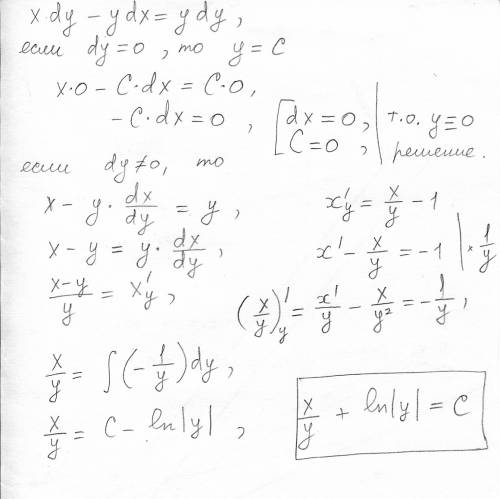 x·dy − y dx = y dy,
если dy=0, то y = C
x·0 − C·dx = C·0,
−C·dx = 0, [dx = 0, C = 0, | т.о. y ≡ 0 решение.
если dy ≠ 0, то
x − y · dx/dy = y,
x − y = y · dx/dy,
(x−y)/y = x'y,
x'y = x/y − 1
x' − x/y = −1 | × 1/y
(x/y)'y = x'/y − x/y² = −1/y,
x/y = ∫(−1/y)dy,
x/y = C − ln|y|,
x/y + ln|y| = C